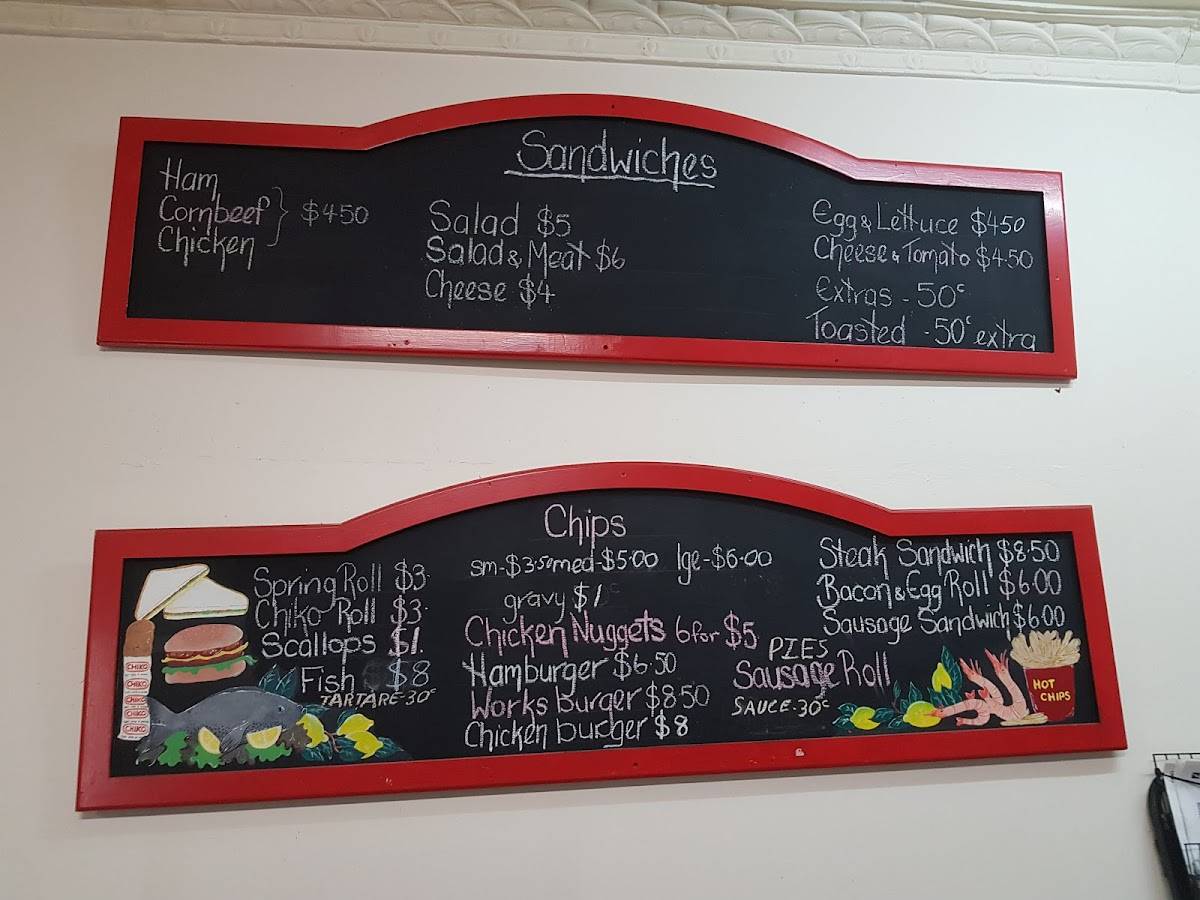 Sandwiches
Ham
Cornbeef } $4.50
Chicken
Salad $5
Salad & Meat $6
Cheese $4
Egg & Lettuce $4.50
Cheese & Tomato $4.50
Extras - 50c
Toasted - 50c extra
Chips
sm-$3.50 med-$5.00 lge-$6.00
gravy $1
Spring Roll $3
Chiko Roll $3
Scallops $1
Fish $8
TARTARE-30c
Chicken Nuggets 6 for $5
Hamburger $6.50
Works burger $8.50
Chicken burger $8
PIES
Sausage Roll
SAUCE-30c
Steak Sandwich $8.50
Bacon & Egg Roll $6.00
Sausage Sandwich $6.00
CHIKO
CHIKO
CHIKO
CHIKO
CHIKO
HOT
CHIPS